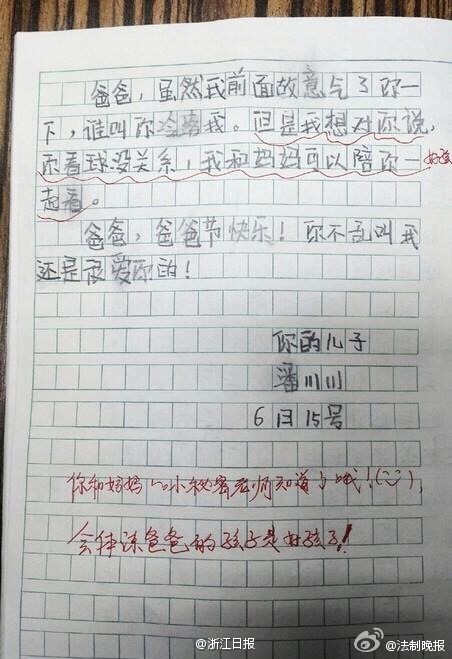 爸爸，虽然我前面故意气了你一
下，谁叫你冷落我。但是我想对你说，
你看球没关系，我和妈妈可以陪你一
起看。
好孩
爸爸，爸爸节快乐！你不乱叫我
还是很爱你的！
你的儿子
潘川川
6月15号
你和妈妈的小秘密老师知道了哦！(:)，
会体谅爸爸的孩子是好孩子！
@浙江日报
@法制晚报